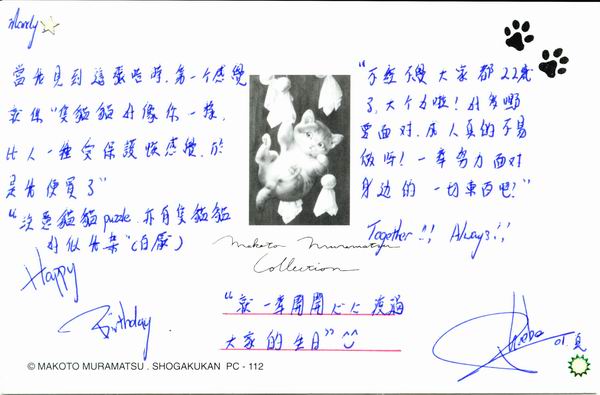 Mandy
當我見到這張咭時,第一个感覺
就係"隻貓貓好像你一樣,
比人一種受保護嘅感覺,於
是我便買了"
"注意貓貓 puzzle, 亦有隻貓貓
好似
Happy
Birthday
MAKOTO MURAMATSU
Collection
"不經不覺大家都22歲
了,大个女啦!好多嘢
要面對,成人真的不易
做㗎!一起努力面對
身边的一切東西吧!"
Together!! Always!!
"就一齊開開心心渡過
大家的生日" ^^
© MAKOTO MURAMATSU . SHOGAKUKAN PC - 112